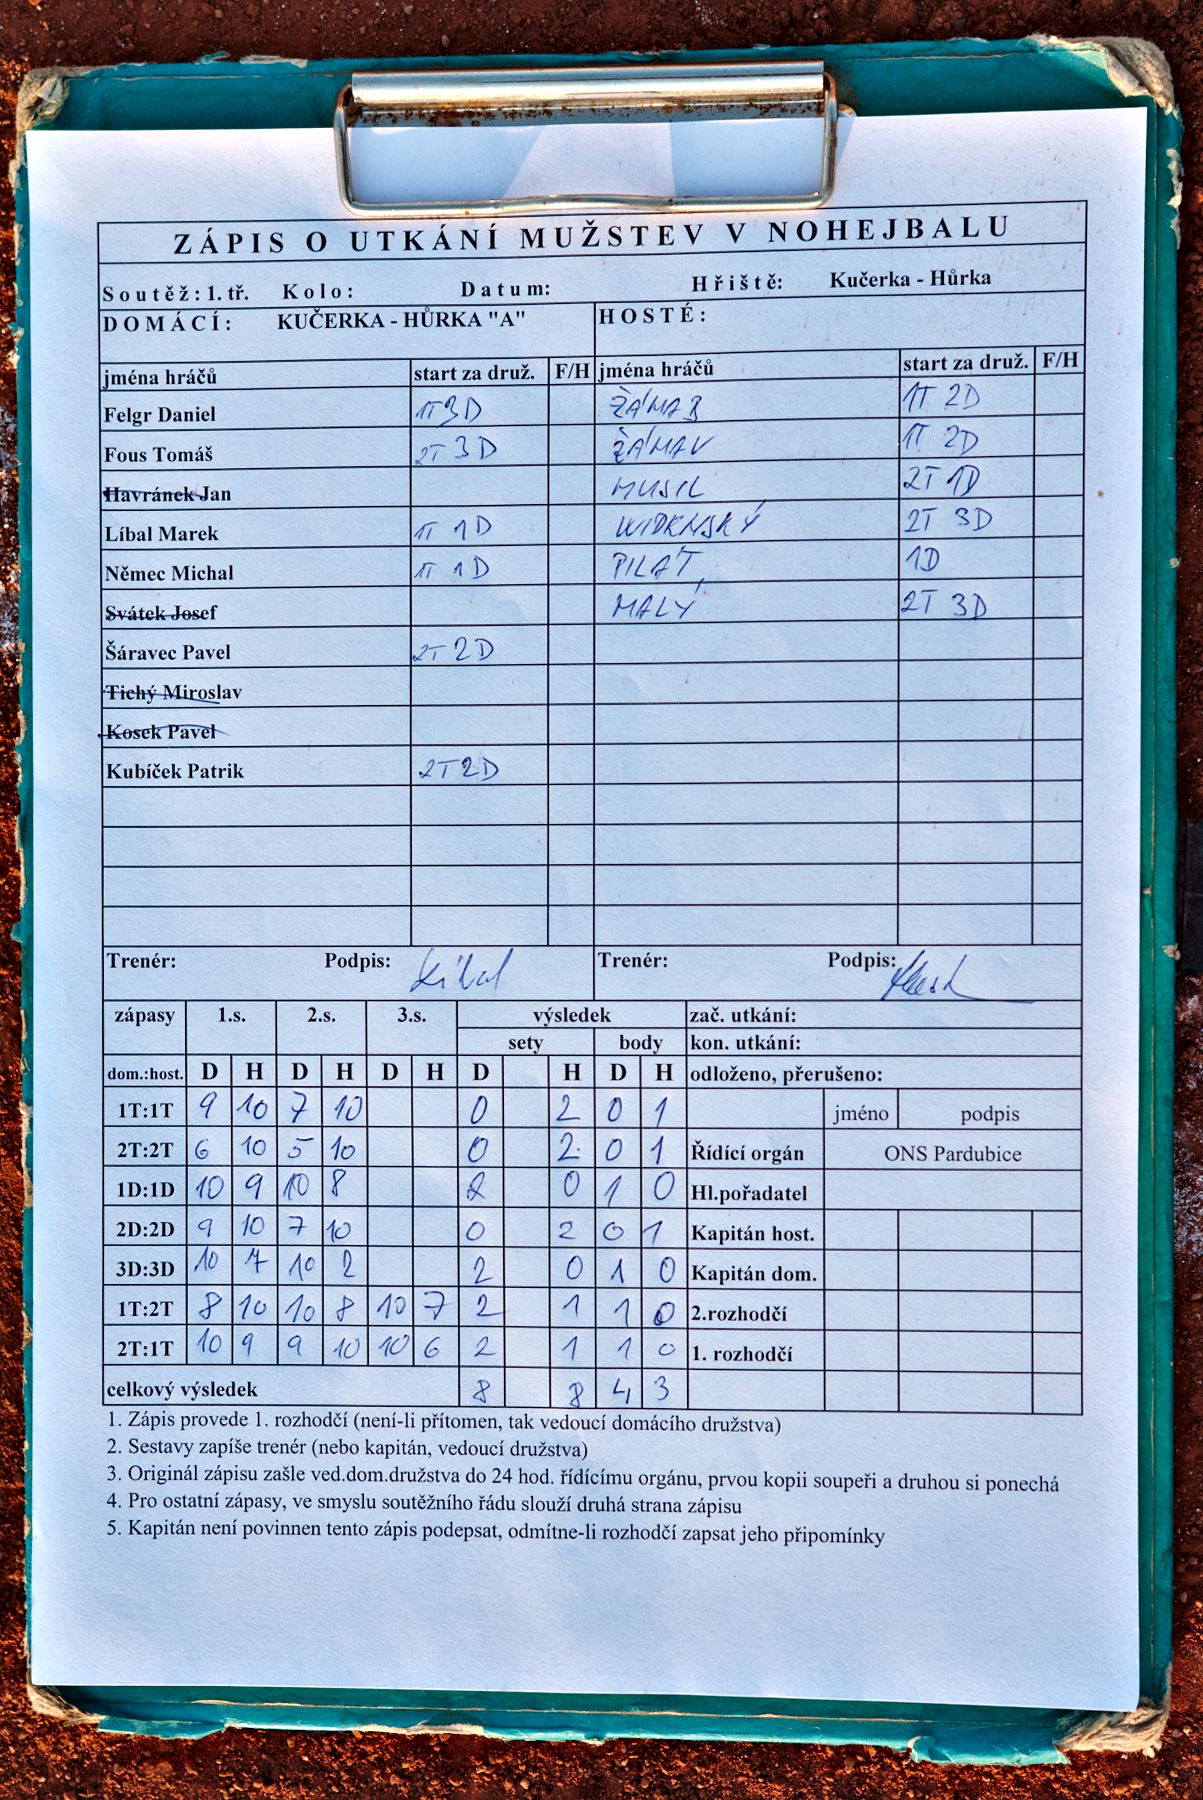 ZÁPIS O UTKÁNÍ MUŽSTEV V NOHEJBALU
Soutěž: 1. tř. Kolo: Datum: Hřiště: Kučerka - Hůrka
DOMÁCÍ: KUČERKA - HŮRKA "A" HOSTÉ:
jména hráčů start za druž. F/H jména hráčů start za druž. F/H
Felgr Daniel 1T 3D ŽÁMA B 1T 2D
Fous Tomáš 2T 3D ŽÁMA V 1T 2D
Havránek Jan MUSIL 2T 1D
Líbal Marek 1T 1D WIDENSKÝ 2T 3D
Němec Michal 1T 1D PILAŤ 1D
Svátek Josef MALÝ 2T 3D
Šáravec Pavel 2T 2D
Tichý Miroslav
Kosek Pavel
Kubíček Patrik 2T 2D
Trenér: Podpis: Líbal Trenér: Podpis:
zápasy 1.s. 2.s. 3.s. výsledek zač. utkání:
sety body kon. utkání:
dom.:host. D H D H D H D H D H odloženo, přerušeno:
1T:1T 9 10 7 10 0 2 0 1 jméno podpis
2T:2T 6 10 5 10 0 2 0 1 Řídící orgán ONS Pardubice
1D:1D 10 9 10 8 2 0 1 0 Hl.pořadatel
2D:2D 9 10 7 10 0 2 0 1 Kapitán host.
3D:3D 10 7 10 2 2 0 1 0 Kapitán dom.
1T:2T 8 10 10 8 10 7 2 1 1 0 2.rozhodčí
2T:1T 10 9 9 10 10 6 2 1 1 0 1. rozhodčí
celkový výsledek 8 8 4 3
1. Zápis provede 1. rozhodčí (není-li přítomen, tak vedoucí domácího družstva)
2. Sestavy zapíše trenér (nebo kapitán, vedoucí družstva)
3. Originál zápisu zašle ved.dom.družstva do 24 hod. řídícímu orgánu, prvou kopii soupeři a druhou si ponechá
4. Pro ostatní zápasy, ve smyslu soutěžního řádu slouží druhá strana zápisu
5. Kapitán není povinnen tento zápis podepsat, odmítne-li rozhodčí zapsat jeho připomínky